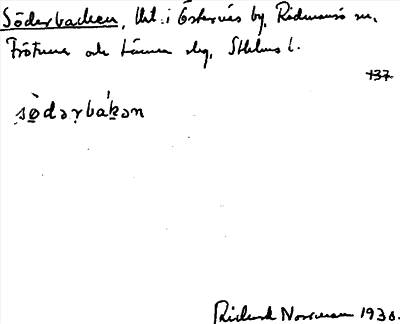 Söderbacken, Utt. i Östernäs by, Rådmansö sn,
Frötuna och Länna skg, Sthlms l.
137
sö̀dərbákən
Rickard Norrman 1938.